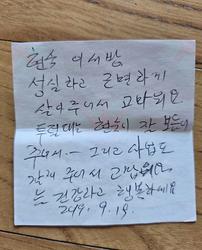 현숙 이서방
성실하고 근면하게
살아주니서 고마워요
투럴때는 현숙이 잔 보듬어
주면서 — 그리고 사업도
잘해 주니서 고맙워요
늘 건강하고 행복하세요
2019. 9. 19.